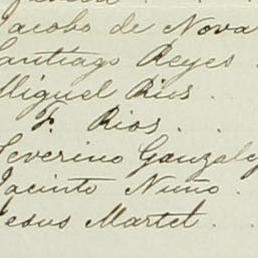 Jacobo de Nova
Santiago Reyes .
Miguel Rios .
F. Rios . .
Severino Gauzaley
Jacinto Nuño .
Jesus Martel . .